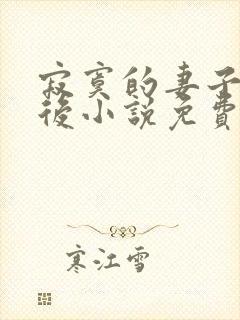 寂寞的妻子
後小說免費
寒江雪